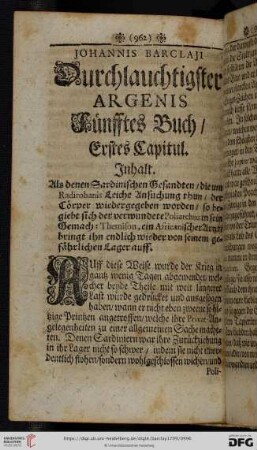 (962)
JOHANNIS BARCLAJI
Durchlauchtigster
ARGENIS
Fünfftes Buch/
Erstes Capitul.
Inhalt.
Als denen Sardinischen Gesandten/ die um
Radirobanis Leiche Ansuchung thun/ der
Cörper wiedergegeben worden/ so be-
giebt sich der verwundete Poliarchus in sein
Gemach: Themison, ein Artzt
bringt ihn endlich wieder von seinem ge-
fährlichen Lager auff.
AUff diese Weise wurde der Krieg in
gantz wenig Tagen abgewendet, wel-
cher beyde Theile mit weit längerer
Last würde gedrücket und ausgesogen
haben/ wann er nicht eben zweene so hi-
tzige Printzen angetroffen/ welche ihre Privat-An-
gelegenheiten zu einer allgemeinen Sache mach-
ten. Denen Sardiniern war ihre Zurückziehung
in ihr Lager nicht so schwer/ indem sie nicht
dentlich flohen/ sondern wohlgeschlossen wichen/ und
Poli-
https://digi.ub.uni-heidelberg.de/diglit/barclay1701/0996
© Universitätsbibliothek Heidelberg
gefördert durch die
DFG